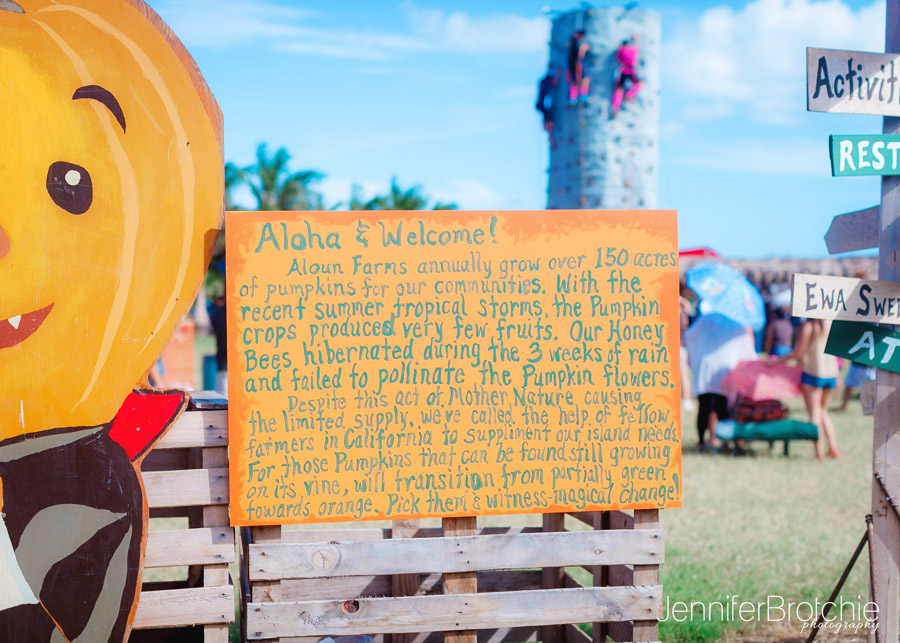 Aloha & Welcome!
Aloun Farms annually grow over 150 acres
of pumpkins for our communities. With the
recent summer tropical storms, the Pumpkin
crops produced very few fruits. Our Honey
Bees hibernated during the 3 weeks of rain
and failed to pollinate the Pumpkin flowers.
Despite this act of Mother Nature, causing
the limited supply, we've called the help of fellow
farmers in California to suppliment our island needs.
For those Pumpkins that can be found still growing
on its vine, will transition from partially green
towards orange. Pick them & witness magical change!
Activit
REST
EWA SWE
AT
JenniferBrotchie
photography